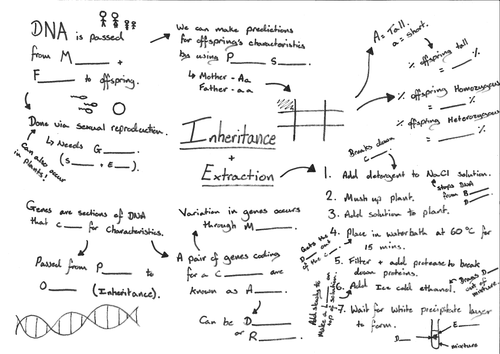 DNA is passed
from M_____ +
F_____ to offspring.
Done via sexual reproduction.
↳ Needs G_____
(S_____ + E___).
Can also occur
in plants!
Genes are sections of DNA
that c___ for characteristics.
Passed from P_____ to
O_____ (Inheritance).
We can make predictions
for offspring's characteristics
by using P_____ S_____.
↳ Mother - Aa
Father - aa
A = Tall.
a = short.
% offspring tall
= ____ %
% offspring Homozygous
= ____ %
% offspring Heterozygous
= ____ %
Inheritance
+
Extraction
Variation in genes occurs
through M_____.
A pair of genes coding
for a C_____ are
known as A_____.
Can be D_____
or R_____.
Breaks down
C_____
1. Add detergent to NaCl solution.
stops DNA
from B_____
D_____
2. Mush up plant.
3. Add solution to plant.
4. Place in waterbath at 60°C for
15 mins.
Gets the
D___ out
of the C___.
5. Filter + add protease to break
down proteins.
6. Add Ice cold ethanol.
Breaks D___
out of
mixture.
Add slowly to
make a L___ on
top of solution.
7. Wait for white precipitate layer
to form.
D___
E___
mixture